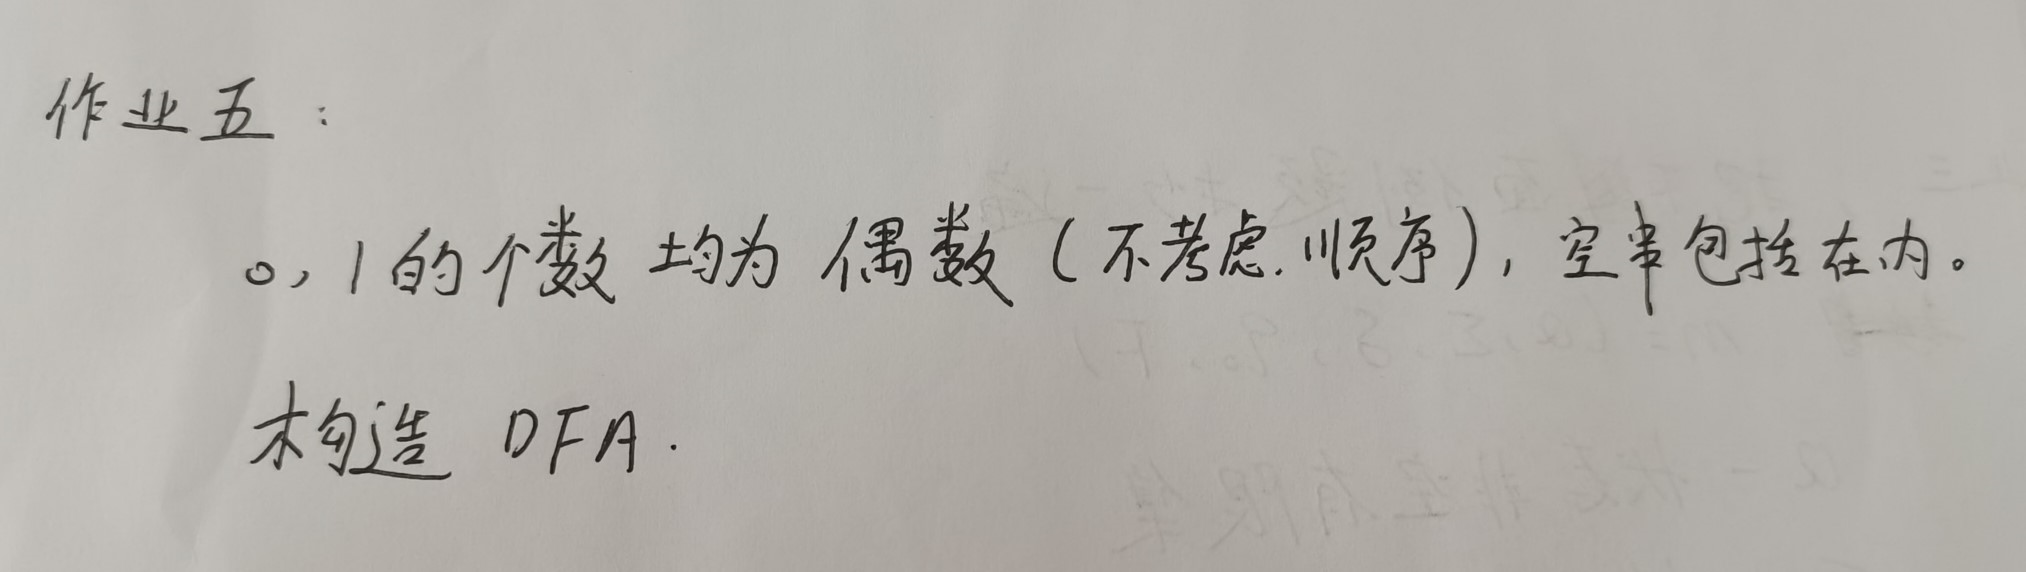 作业五：
0，1的个数均为偶数（不考虑顺序），空串包括在内。
构造 DFA.